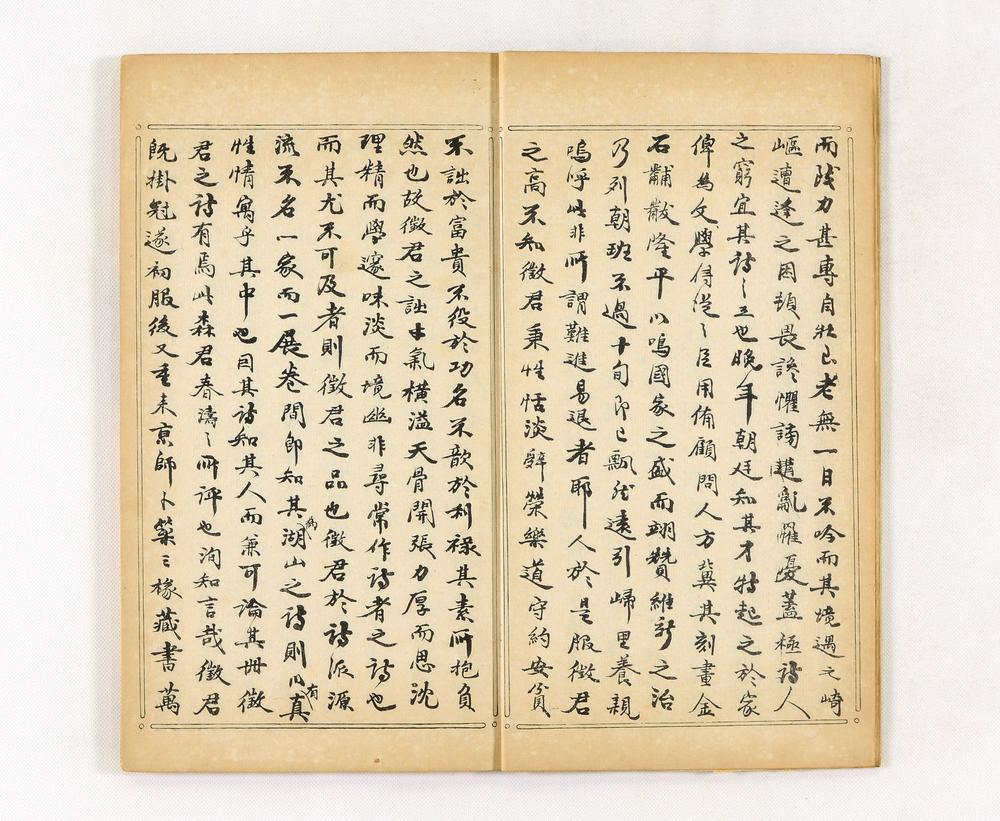 而殘力甚專自壯已老無一日不吟而其境遇之崎
嶇遭逢之困頓畏讒懼譎遭亂罹憂蓋極詩人
之窮宜其詩之工也晚年朝廷知其才特起之於家
俾為文學侍從之臣用備顧問人方冀其刻畫金
石黼黻隆平以鳴國家之盛而翊贊維新之治
乃列朝班不過十旬即已飄然遠引歸里養親
嗚呼此非所謂難進易退者耶人於是服徵君
之高不知徵君秉性恬淡辭榮樂道守約安貧
不詘於富貴不役於功名不歆於利祿其素所抱負
然也故徵君之詘才氣橫溢天骨開張力厚而思沈
理精而學邃味淡而境幽非尋常作詩者之詩也
而其尤不可及者則徵君之品也徵君於詩派源
流不名一家而一展卷間即知其為湖山之詩則以有真
性情寓乎其中也因其詩知其人而兼可論其世徵
君之詩有焉此森君春濤之所評也洵知言哉徵君
既掛冠遂初服後又重來京師卜築三椽藏書萬